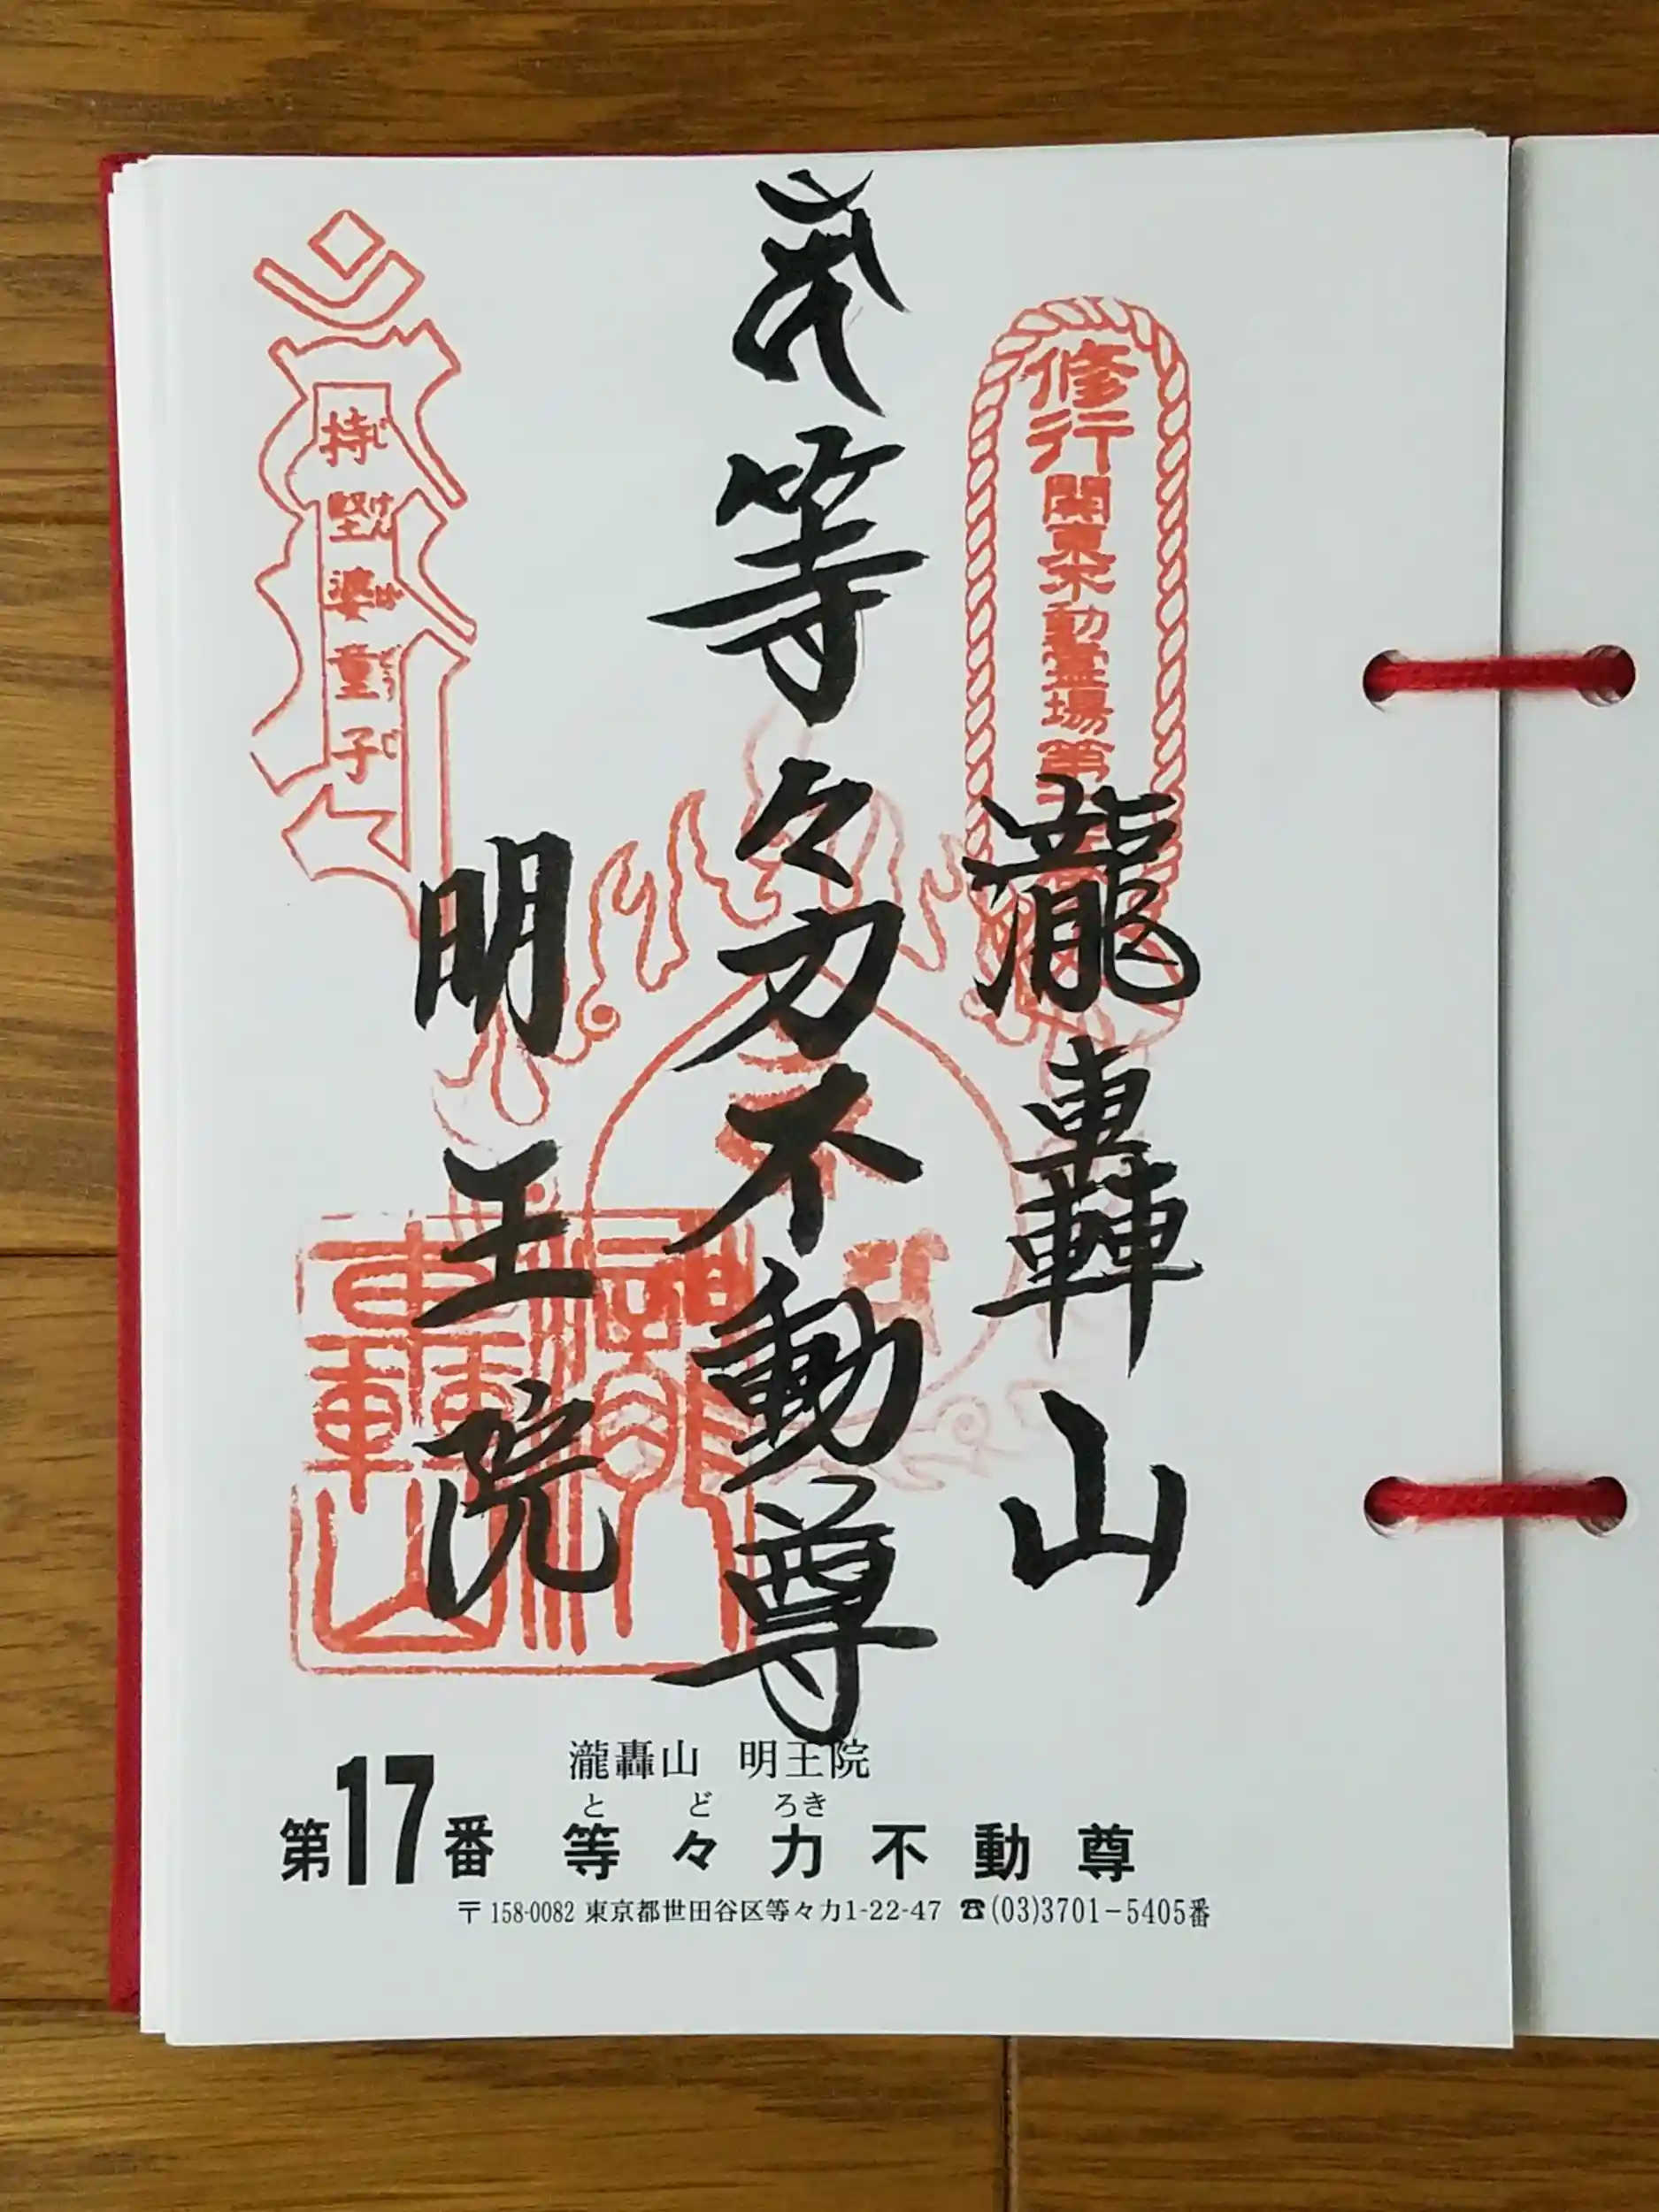 修行
関東不動霊場第
瀧轟山
等々力不動尊
明王院
持堅婆童子
じけんばどうじ
瀧轟山
瀧轟山 明王院
とどろき
第17番 等々力不動尊
〒158-0082 東京都世田谷区等々力1-22-47 ☎(03)3701-5405番